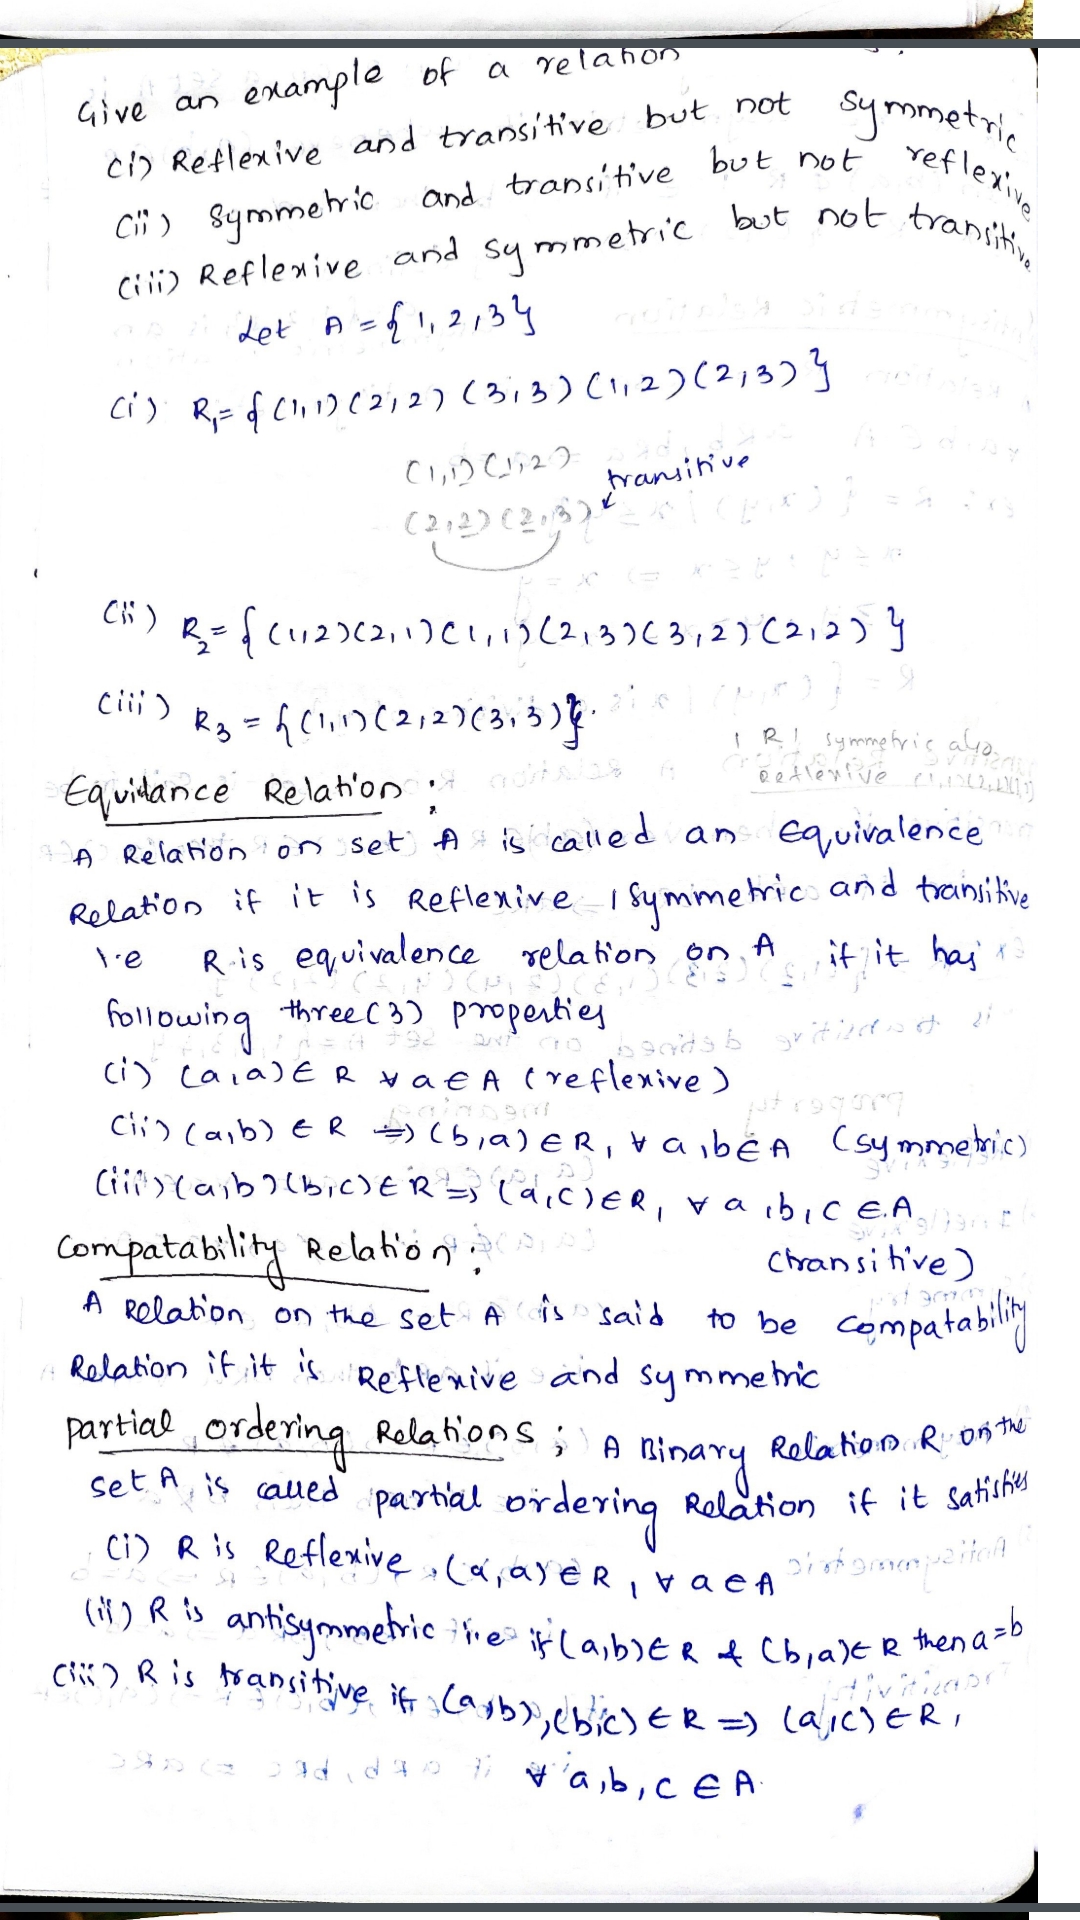 Give an example of a relation
(i) Reflexive and transitive but not symmetric
(ii) Symmetric and transitive but not reflexive
(iii) Reflexive and symmetric but not transitive
Let A = {1, 2, 3}
(i) R₁ = {(1,1)(2,2)(3,3)(1,2)(2,3)}
(1,1)(1,2)
transitive
(2,2)(2,3)
(ii) R₂ = {(1,2)(2,1)(1,1)(2,3)(3,2)(2,2)}
(iii) R₃ = {(1,1)(2,2)(3,3)}.
R! symmetric also
Reflexive
Equidance Relation :
A Relation on set A is called an Equivalence
Relation if it is Reflexive, Symmetric and transitive
i.e R is equivalence relation on A if it has
following three(3) properties
(i) (a,a) ∈ R ∀ a ∈ A (reflexive)
(ii) (a,b) ∈ R ⇒ (b,a) ∈ R, ∀ a,b ∈ A (symmetric)
(iii) (a,b)(b,c) ∈ R ⇒ (a,c) ∈ R, ∀ a,b,c ∈ A
(transitive)
Compatability Relation :
A Relation on the set A is said to be compatability
Relation if it is Reflexive and symmetric
partial ordering Relations ; A Binary Relation R on the
set A is called partial ordering Relation if it satisfies
(i) R is Reflexive, (a,a) ∈ R, ∀ a ∈ A
(ii) R is antisymmetric i.e if (a,b) ∈ R & (b,a) ∈ R then a=b
(iii) R is transitive if (a,b),(b,c) ∈ R ⇒ (a,c) ∈ R,
∀ a,b,c ∈ A.